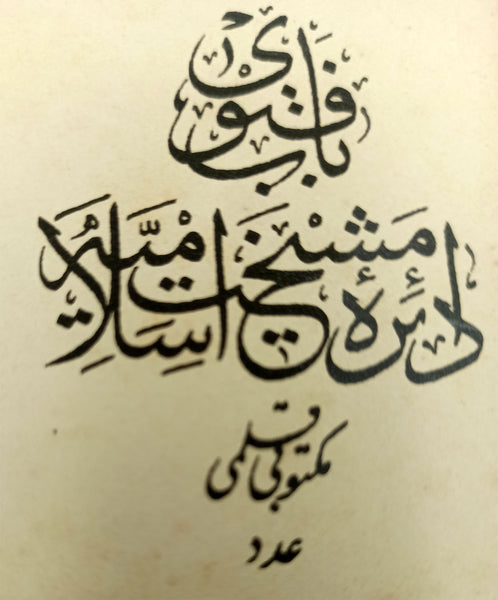 باب فتوى
دائرهٔ مشيخت اسلاميه
مكتوبى قلمى
عدد